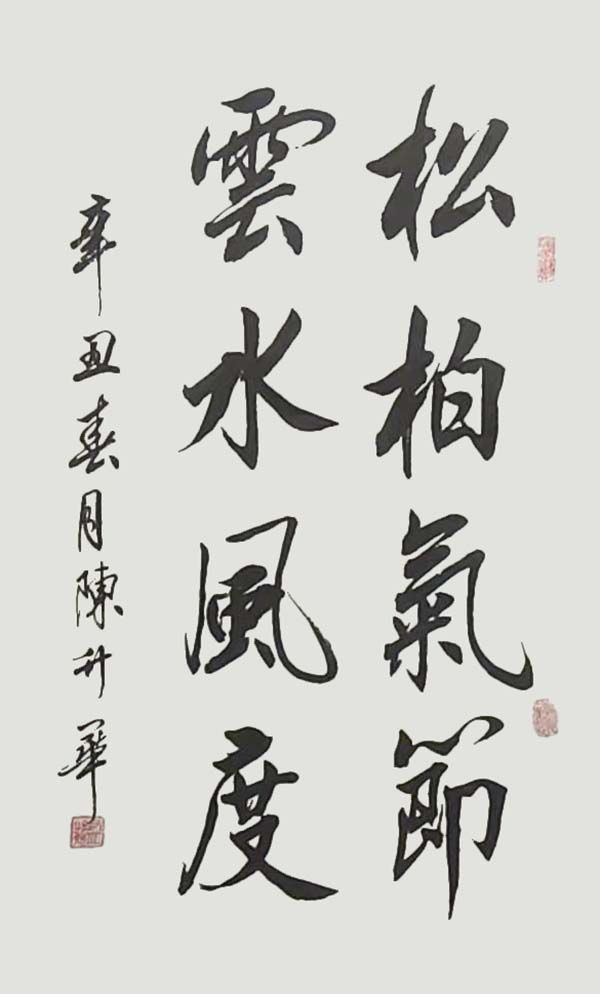 松柏氣節
雲水風度
辛丑春月陳升華